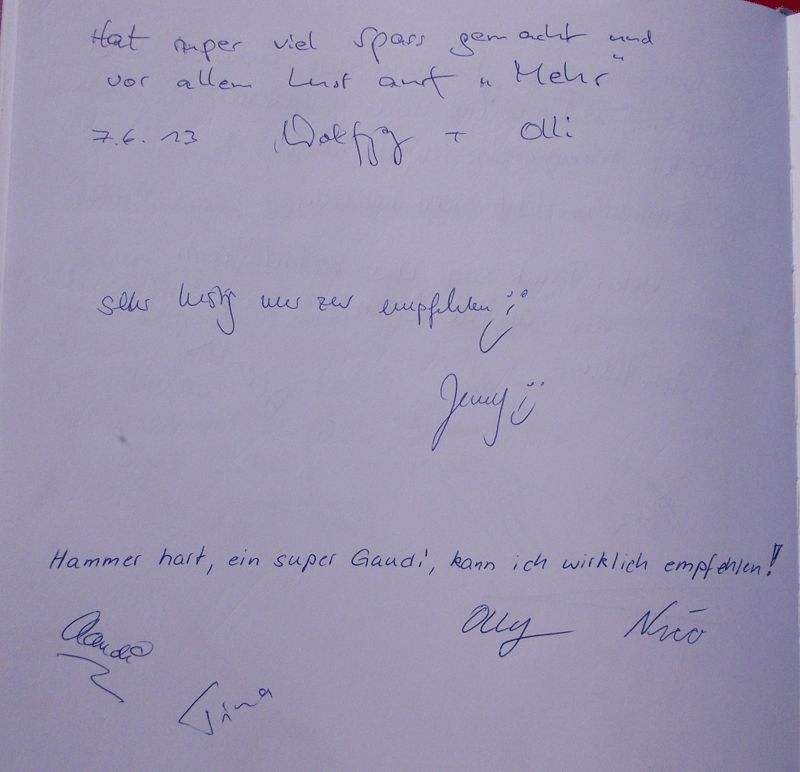 Hat super viel Spass gemacht und
vor allem Lust auf "Mehr"
7.6.13 Wolfgang + Olli
sehr lustig nur zu empfehlen
Jenny
Hammer hart, ein super Gaudi, kann ich wirklich empfehlen!
Claudia Olly Nico
Tina